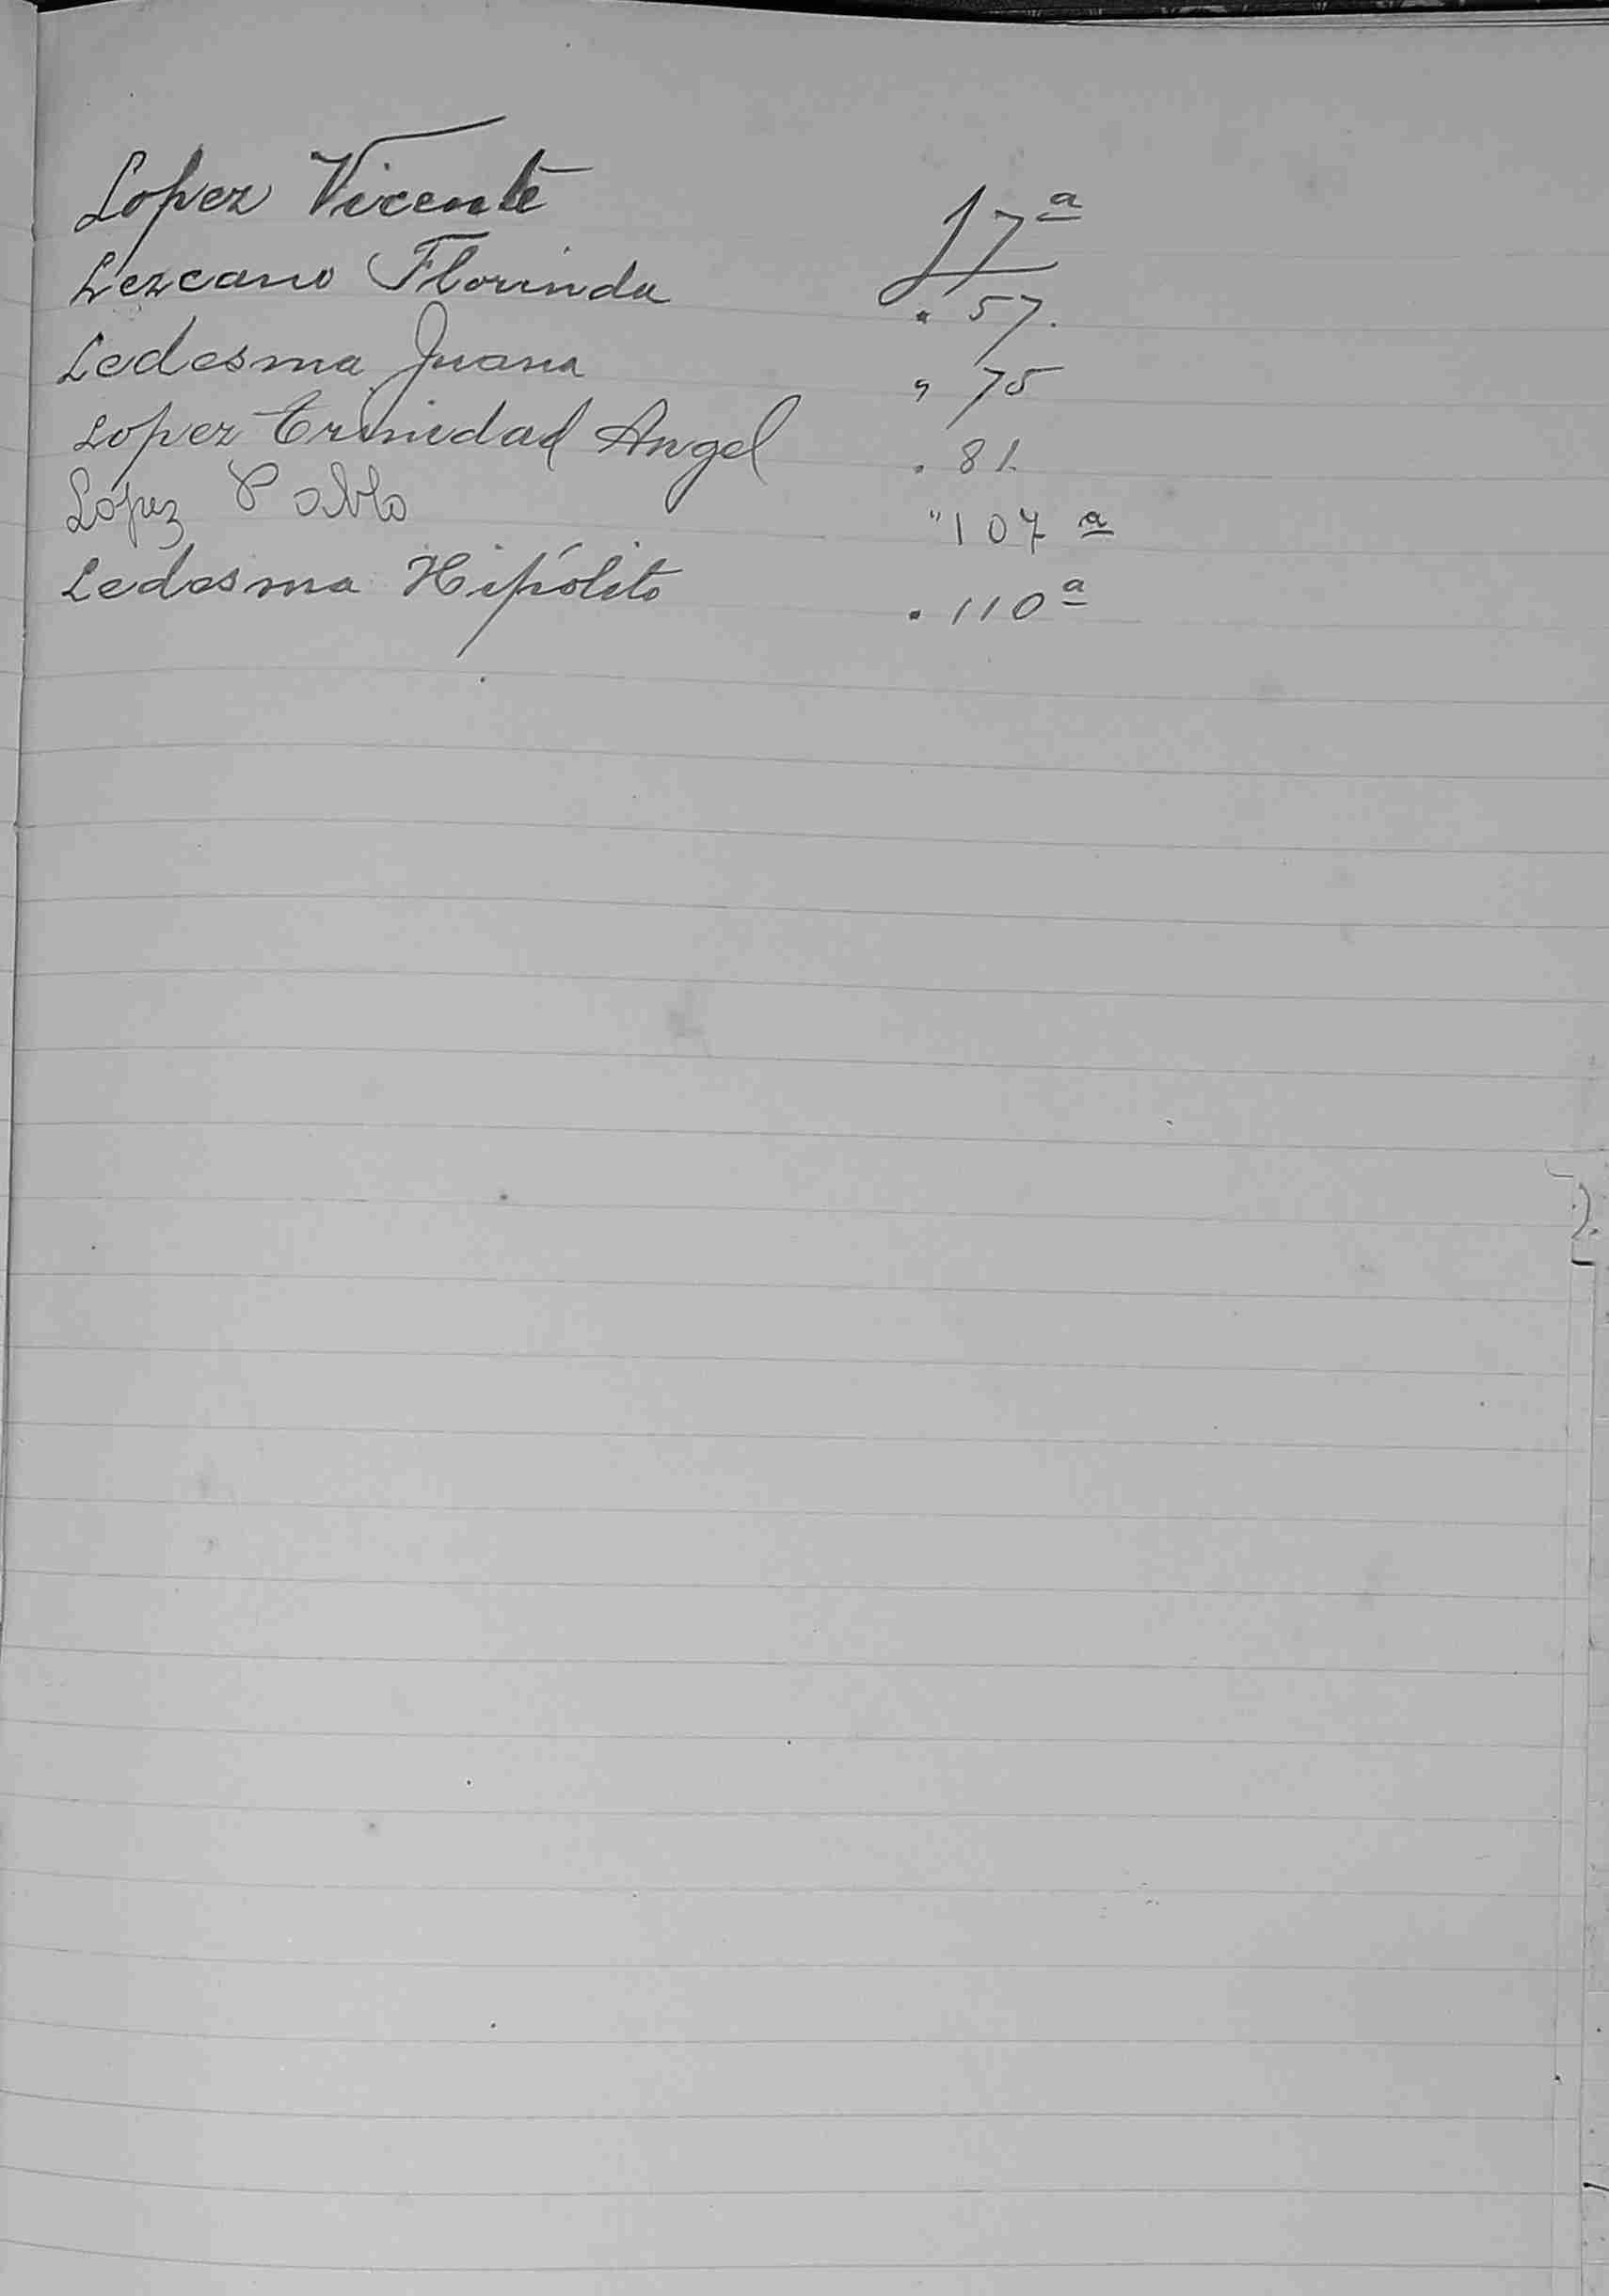 Lopez Vicente f 7ª
Lezcano Florinda " 57.
Ledesma Juana " 75
Lopez Trinidad Angel " 81.
López Pablo " 107 ª
Ledesma Hipólito " 110ª